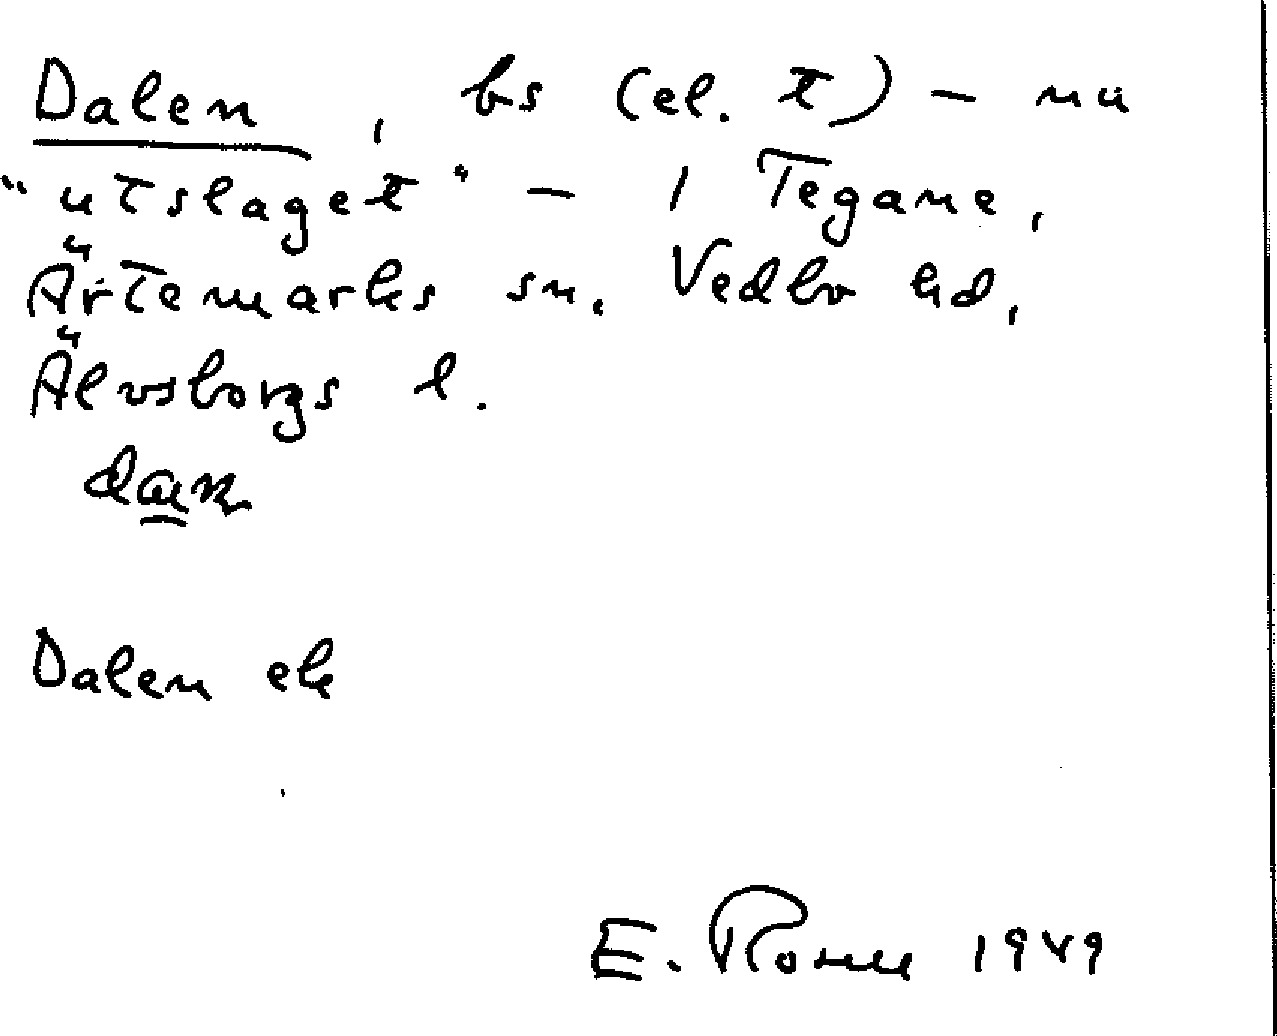 Dalen, bs (el. t) – nu
"utslaget" – i Tegane,
Ärtemarks sn. Vedbo hd,
Älvsborgs l.
Dalen ek
E. 1949